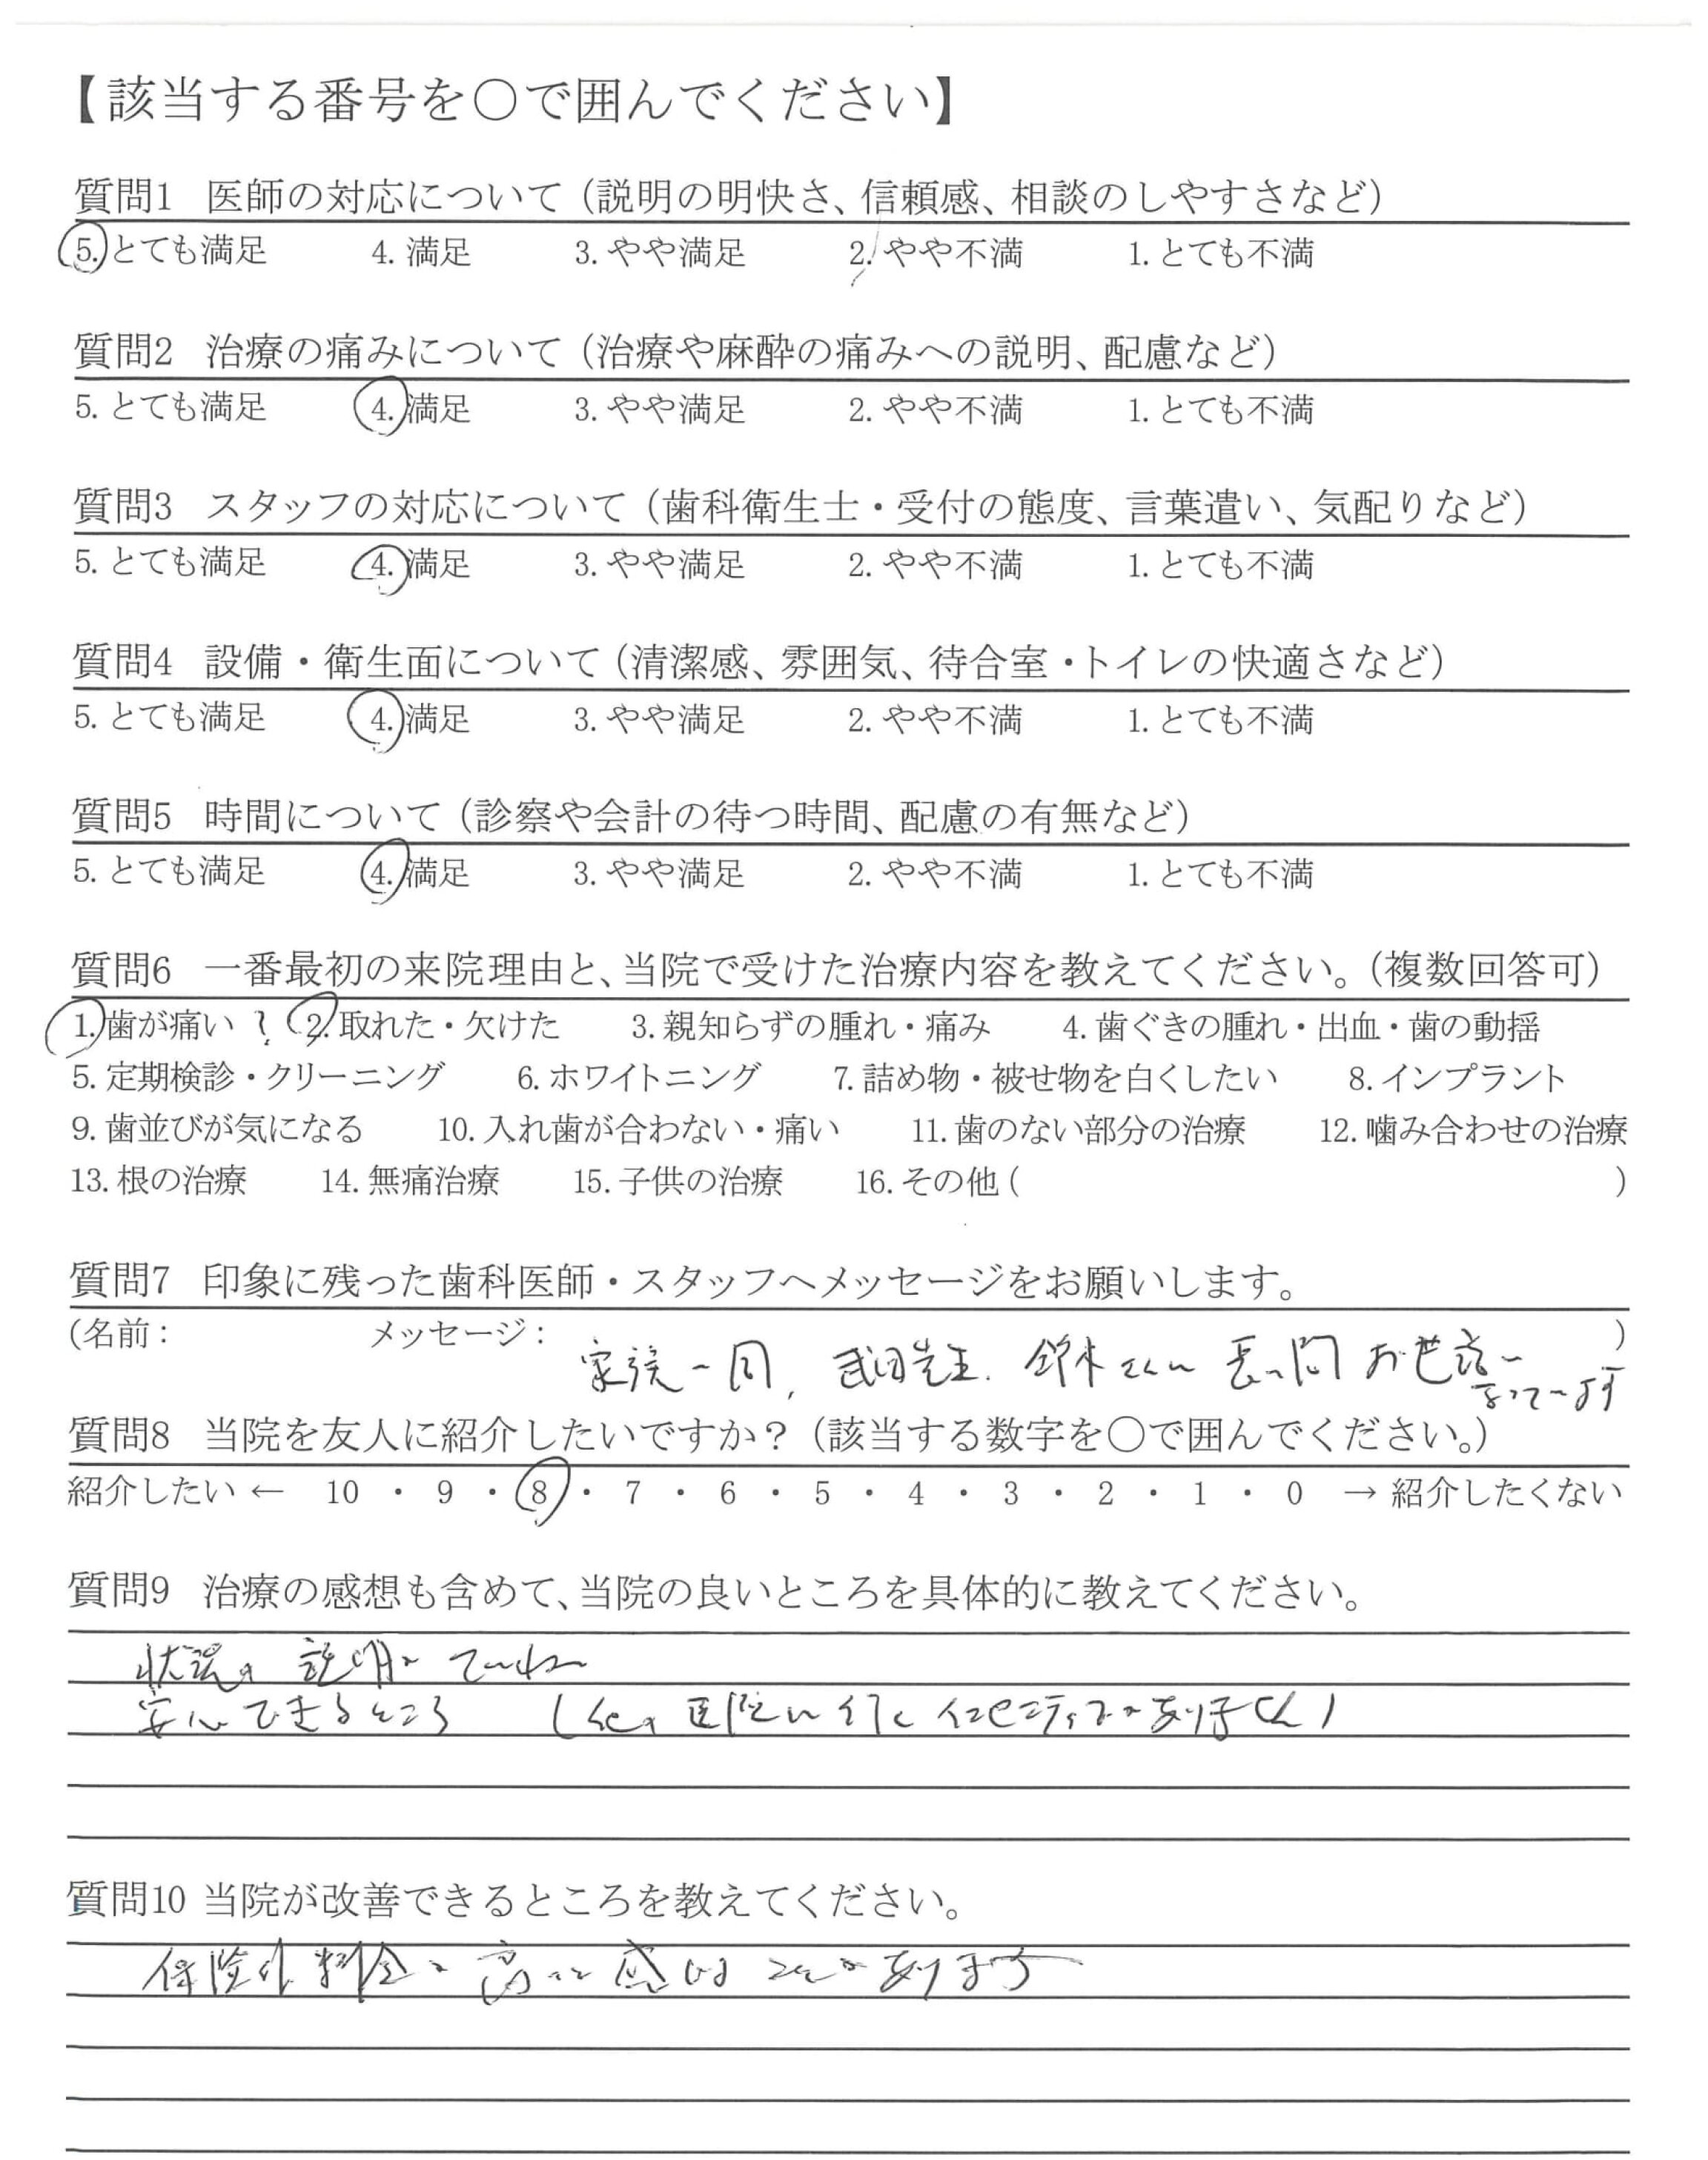 【該当する番号を〇で囲んでください】
質問1 医師の対応について（説明の明快さ、信頼感、相談のしやすさなど）
5. とても満足 4. 満足 3. やや満足 2. やや不満 1. とても不満
質問2 治療の痛みについて（治療や麻酔の痛みへの説明、配慮など）
5. とても満足 4. 満足 3. やや満足 2. やや不満 1. とても不満
質問3 スタッフの対応について（歯科衛生士・受付の態度、言葉遣い、気配りなど）
5. とても満足 4. 満足 3. やや満足 2. やや不満 1. とても不満
質問4 設備・衛生面について（清潔感、雰囲気、待合室・トイレの快適さなど）
5. とても満足 4. 満足 3. やや満足 2. やや不満 1. とても不満
質問5 時間について（診察や会計の待つ時間、配慮の有無など）
5. とても満足 4. 満足 3. やや満足 2. やや不満 1. とても不満
質問6 一番最初の来院理由と、当院で受けた治療内容を教えてください。（複数回答可）
1. 歯が痛い 2. 取れた・欠けた 3. 親知らずの腫れ・痛み 4. 歯ぐきの腫れ・出血・歯の動揺
5. 定期検診・クリーニング 6. ホワイトニング 7. 詰め物・被せ物を白くしたい 8. インプラント
9. 歯並びが気になる 10. 入れ歯が合わない・痛い 11. 歯のない部分の治療 12. 噛み合わせの治療
13. 根の治療 14. 無痛治療 15. 子供の治療 16. その他 ( )
質問7 印象に残った歯科医師・スタッフへメッセージをお願いします。
(名前： メッセージ： )
家族一同、武田先生、鈴木さんに 長い間 お世話に
なっています
質問8 当院を友人に紹介したいですか？（該当する数字を〇で囲んでください。）
紹介したい ← 10 ・ 9 ・ 8 ・ 7 ・ 6 ・ 5 ・ 4 ・ 3 ・ 2 ・ 1 ・ 0 → 紹介したくない
質問9 治療の感想も含めて、当院の良いところを具体的に教えてください。
状況の 説明が ていねい
安心できるところ （他の 医院に行く インセンティブが ありません）
質問10 当院が改善できるところを教えてください。
保険外 料金が 高いと 感じる ことが あります